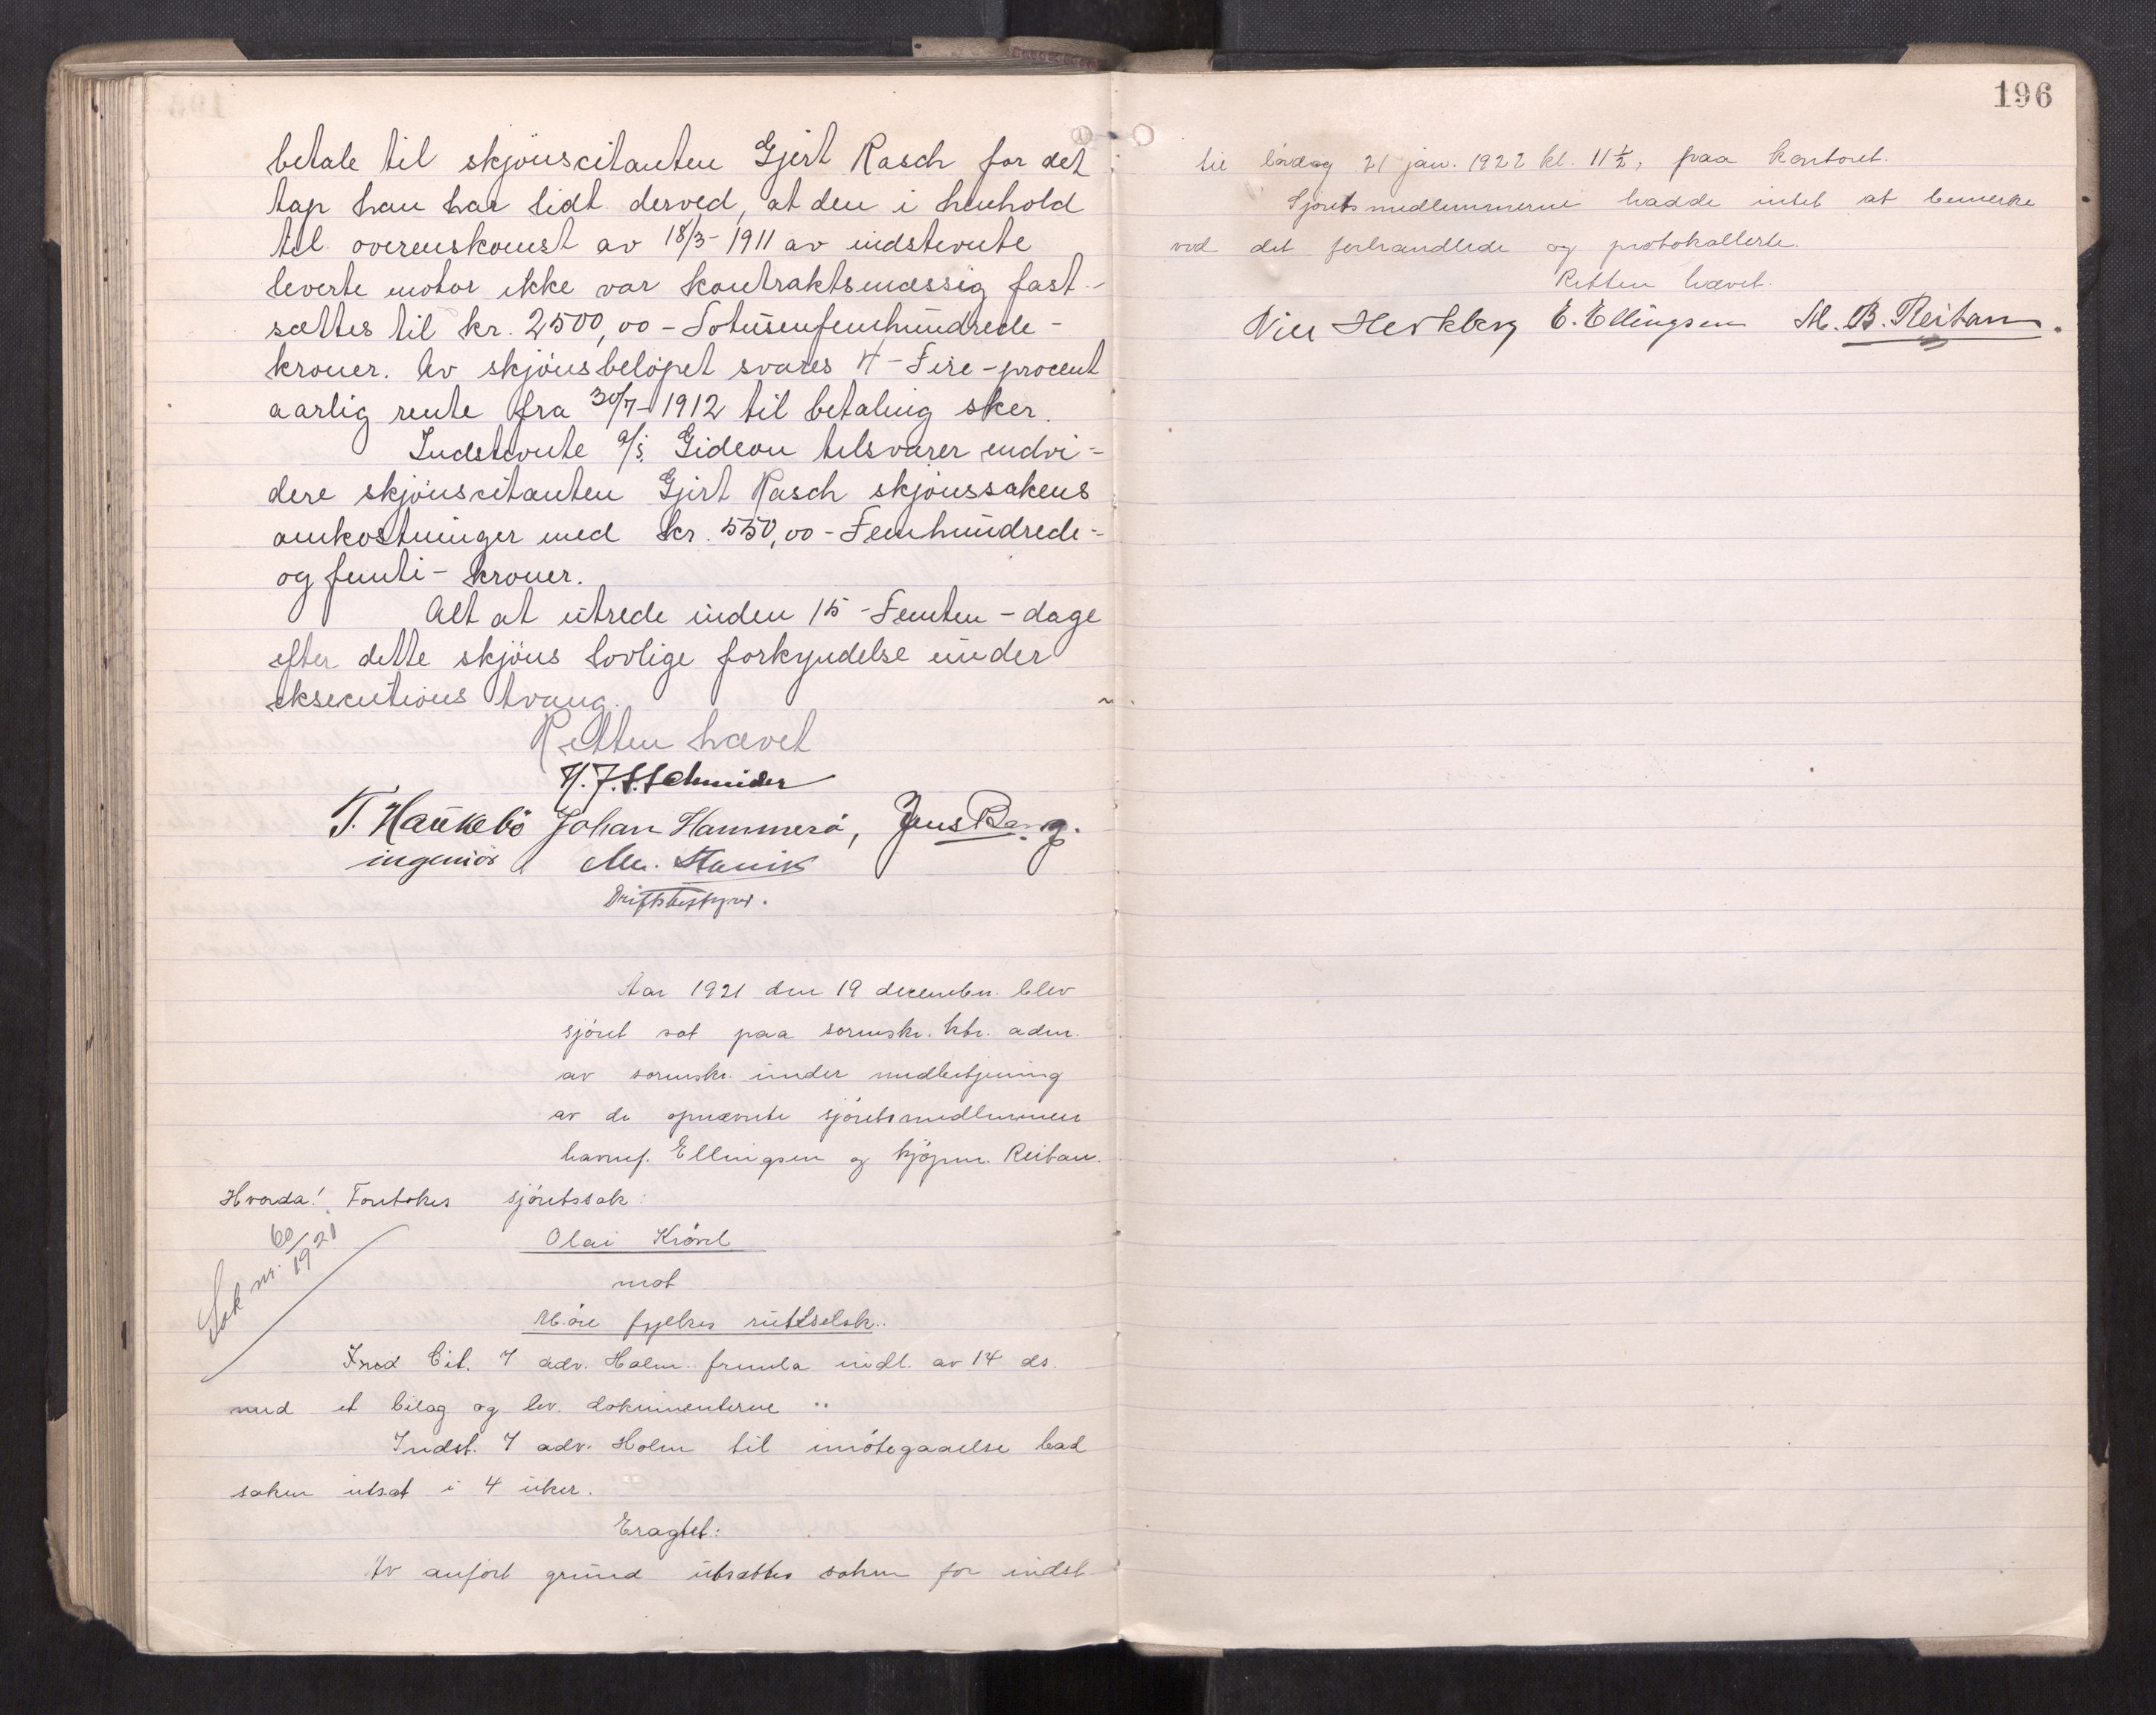 betale til skjönscitanten Gjert Rasch for det
tap han har lidt derved, at den i henhold
til overenskomst av 18/3-1911 av indstevnte
leverte motor ikke var kontraktsmæssig fast-
sættes til kr. 2500,00 - Totusenfemhundrede -
kroner. Av skjönsbelöpet svares 4 - Fire - procent
aarlig rente fra 30/7-1912 til betaling sker.
Indstevnte a/s. Gideon tilsvarer endvi-
dere skjönscitanten Gjert Rasch skjönssakens
omkostninger med kr. 550,00 - Femhundrede-
og femti - kroner.
Alt at utrede inden 15 - Femten - dage
efter dette skjöns lovlige forkyndelse under
eksecutions tvang.
Retten hævet
T. Haukebö Johan Hammerö, Jens Bang.
ingeniör
Driftsbestyrer.
Aar 1921 den 19 december blev
sjöret sat paa sorenskr. ktr. adm.
av sorenskr. under medbetjening
av de opnævnte sjöretsmedlemmer
havnef. Ellingsen og kjöpm. Reitan.
Hvorda! Foretokes sjöretssak:
Sak nr. 60/1921
Olai Krövel
mot
Möre fylkes ruteselsk.
For Cit. 7 adv. Holm. fremla indl. av 14 ds.
med et bilag og lev. dokumenterne ..
Indst. 7 adv. Holm til imötegaaelse bad
saken utsat i 4 uker.
Eragtet:
Av anfört grund utsættes saken for indst
196
til lördag 21 jan. 1922 kl. 11 ½, paa kontoret.
Sjöretsmedlemmerne hadde intet at bemerke
ved det forhandlede og protokollerte.
Retten hævet.
E. Ellingsen M. B. Reitan.